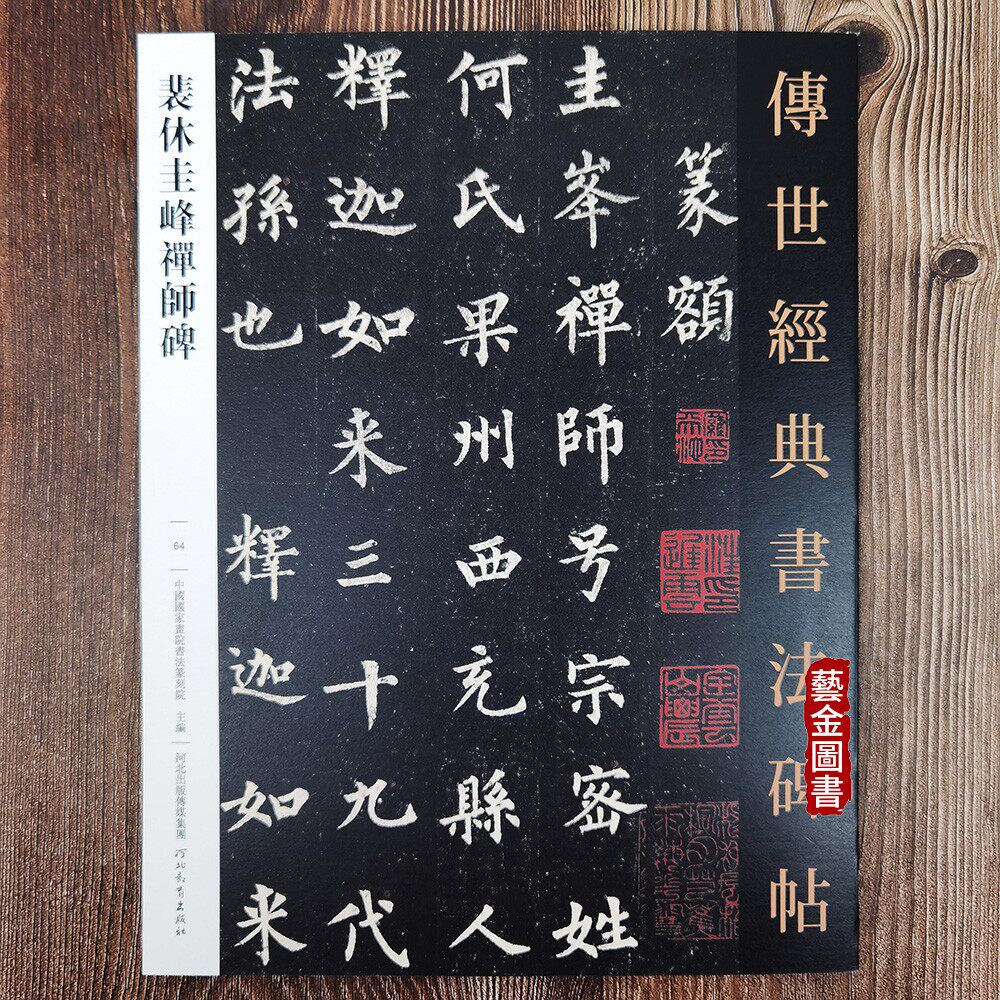 傳世經典書法碑帖
藝金圖書
篆額
圭峯禪師号宗密姓
何氏果州西充縣人
釋迦如来三十九代
法孫也 釋迦如来
裴休圭峰禪師碑
64
中國國家畫院書法篆刻院 主編
河北出版傳媒集團
河北教育出版社